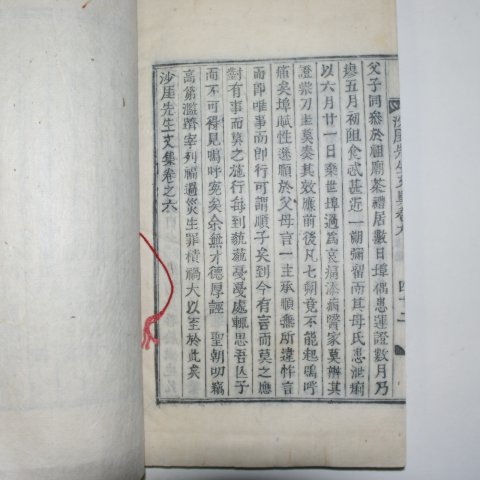 父子同參於祖廟茶禮居數日埠偶患運證數月乃
瘳五月初阻食忒甚近一朔彌留而其母氏患泄痢
以六月廿一日棄世埠過爲哀痛添病醫家莫辨其
證柴刀圭莫奏其效應前後凡七朔竟不能起嗚呼
痛矣埠賦性遜順於父母言一主承順無所違忤言
而卽唯事而卽行可謂順子矣到今有言而莫之應
對有事而莫之施行每到藐藐憂憂處輒思吾亾子
而不可得見嗚呼寃矣余無才德厚誣 聖朝叨竊
高第濫躋宰列福過災生罪積禍大以至於此矣
沙厓先生文集卷之六
沙厓先生文集卷六 四十二